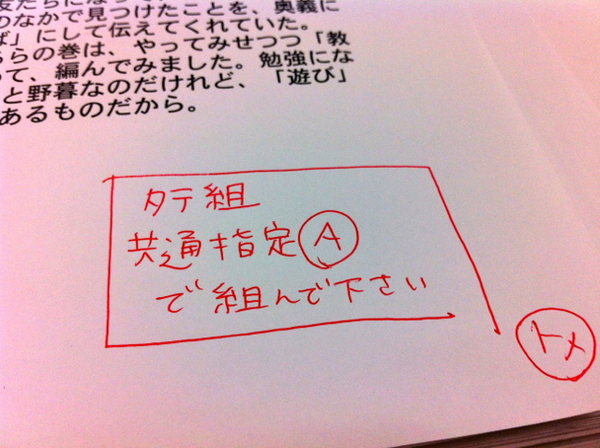 友だちになって、
のなかで見つけたことを、奥義に
ば」にして伝えてくれていた。
らの巻は、やってみせつつ「教
って、編んでみました。勉強にな
と野暮なのだけれど、「遊び」
あるものだから。
タテ組
共通指定Ⓐ
で組んで下さい
トメ